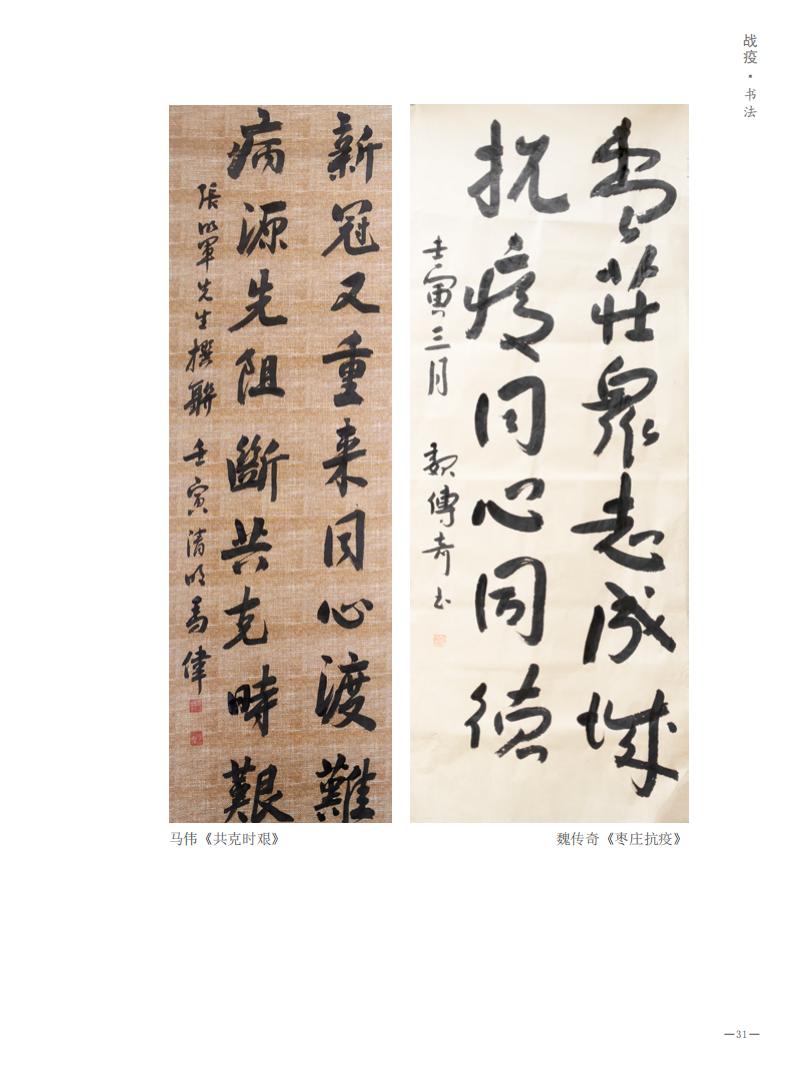 战疫·书法
新冠又重来同心渡難
病源先阻斷共克時艱
張明軍先生撰聯 壬寅清明馬偉
棗莊衆志成城
抗疫同心同德
壬寅三月 魏傳奇书
马伟《共克时艰》
魏传奇《枣庄抗疫》
—31—